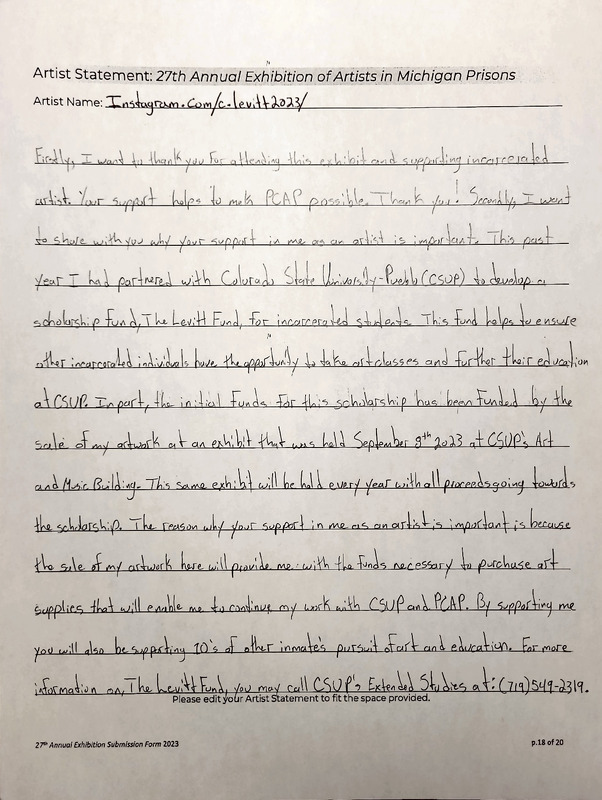 Artist Statement: 27th Annual Exhibition of Artists in Michigan Prisons
Artist Name: Instagram.com/c.levitt2023/
Firstly, I want to thank you for attending this exhibit and supporting incarcerated
artist. Your support helps to mak PCAP possible. Thank you! Secondly, I want
to share with you why your support in me as an artist is important. This past
year I had partnered with Colorado State University-Pueblo (CSUP) to develop a
scholarship fund, The Levitt Fund, for incarcerated students. This fund helps to ensure
other incarcerated individuals have the opportunity to take art classes and further their education
at CSUP. In part, the initial funds for this scholarship has been funded by the
sale of my artwork at an exhibit that was held September 9th 2023 at CSUP's Art
and Music Building. This same exhibit will be held every year with all proceeds going towards
the scholarship. The reason why your support in me as an artist is important is because
the sale of my artwork here will provide me with the funds necessary to purchase art
supplies that will enable me to continue my work with CSUP and PCAP. By supporting me
you will also be supporting 10's of other inmate's pursuit of art and education. For more
information on, The Levitt Fund, you may call CSUP's Extended Studies at: (719)549-2319.
Please edit your Artist Statement to fit the space provided.
27th Annual Exhibition Submission Form 2023
p.18 of 20